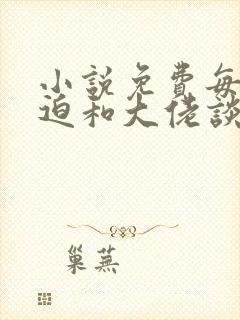 小說免費每
迫和大佬談
巢蕪